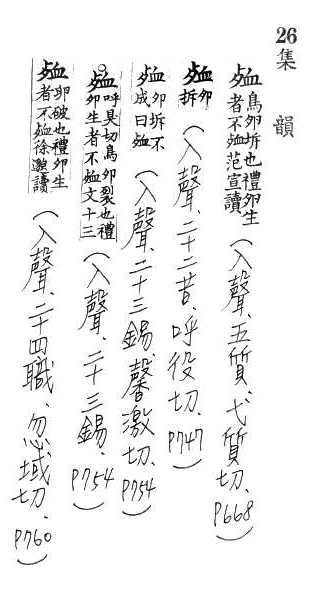 26集韻
殈鳥卵坼也禮卵生者不殈范宣讀(入聲、五質、弋質切、P668)
殈卵拆(入聲、二十二昔、呼役切、P747)
殈卵坼不成曰殈(入聲、二十三錫、馨激切、P754)
殈呼狊切鳥卵裂也禮卵生者不殈文十三(入聲、二十三錫、P754)
殈卵破也禮卵生者不殈徐邈讀(入聲、二十四職、忽域切、P760)